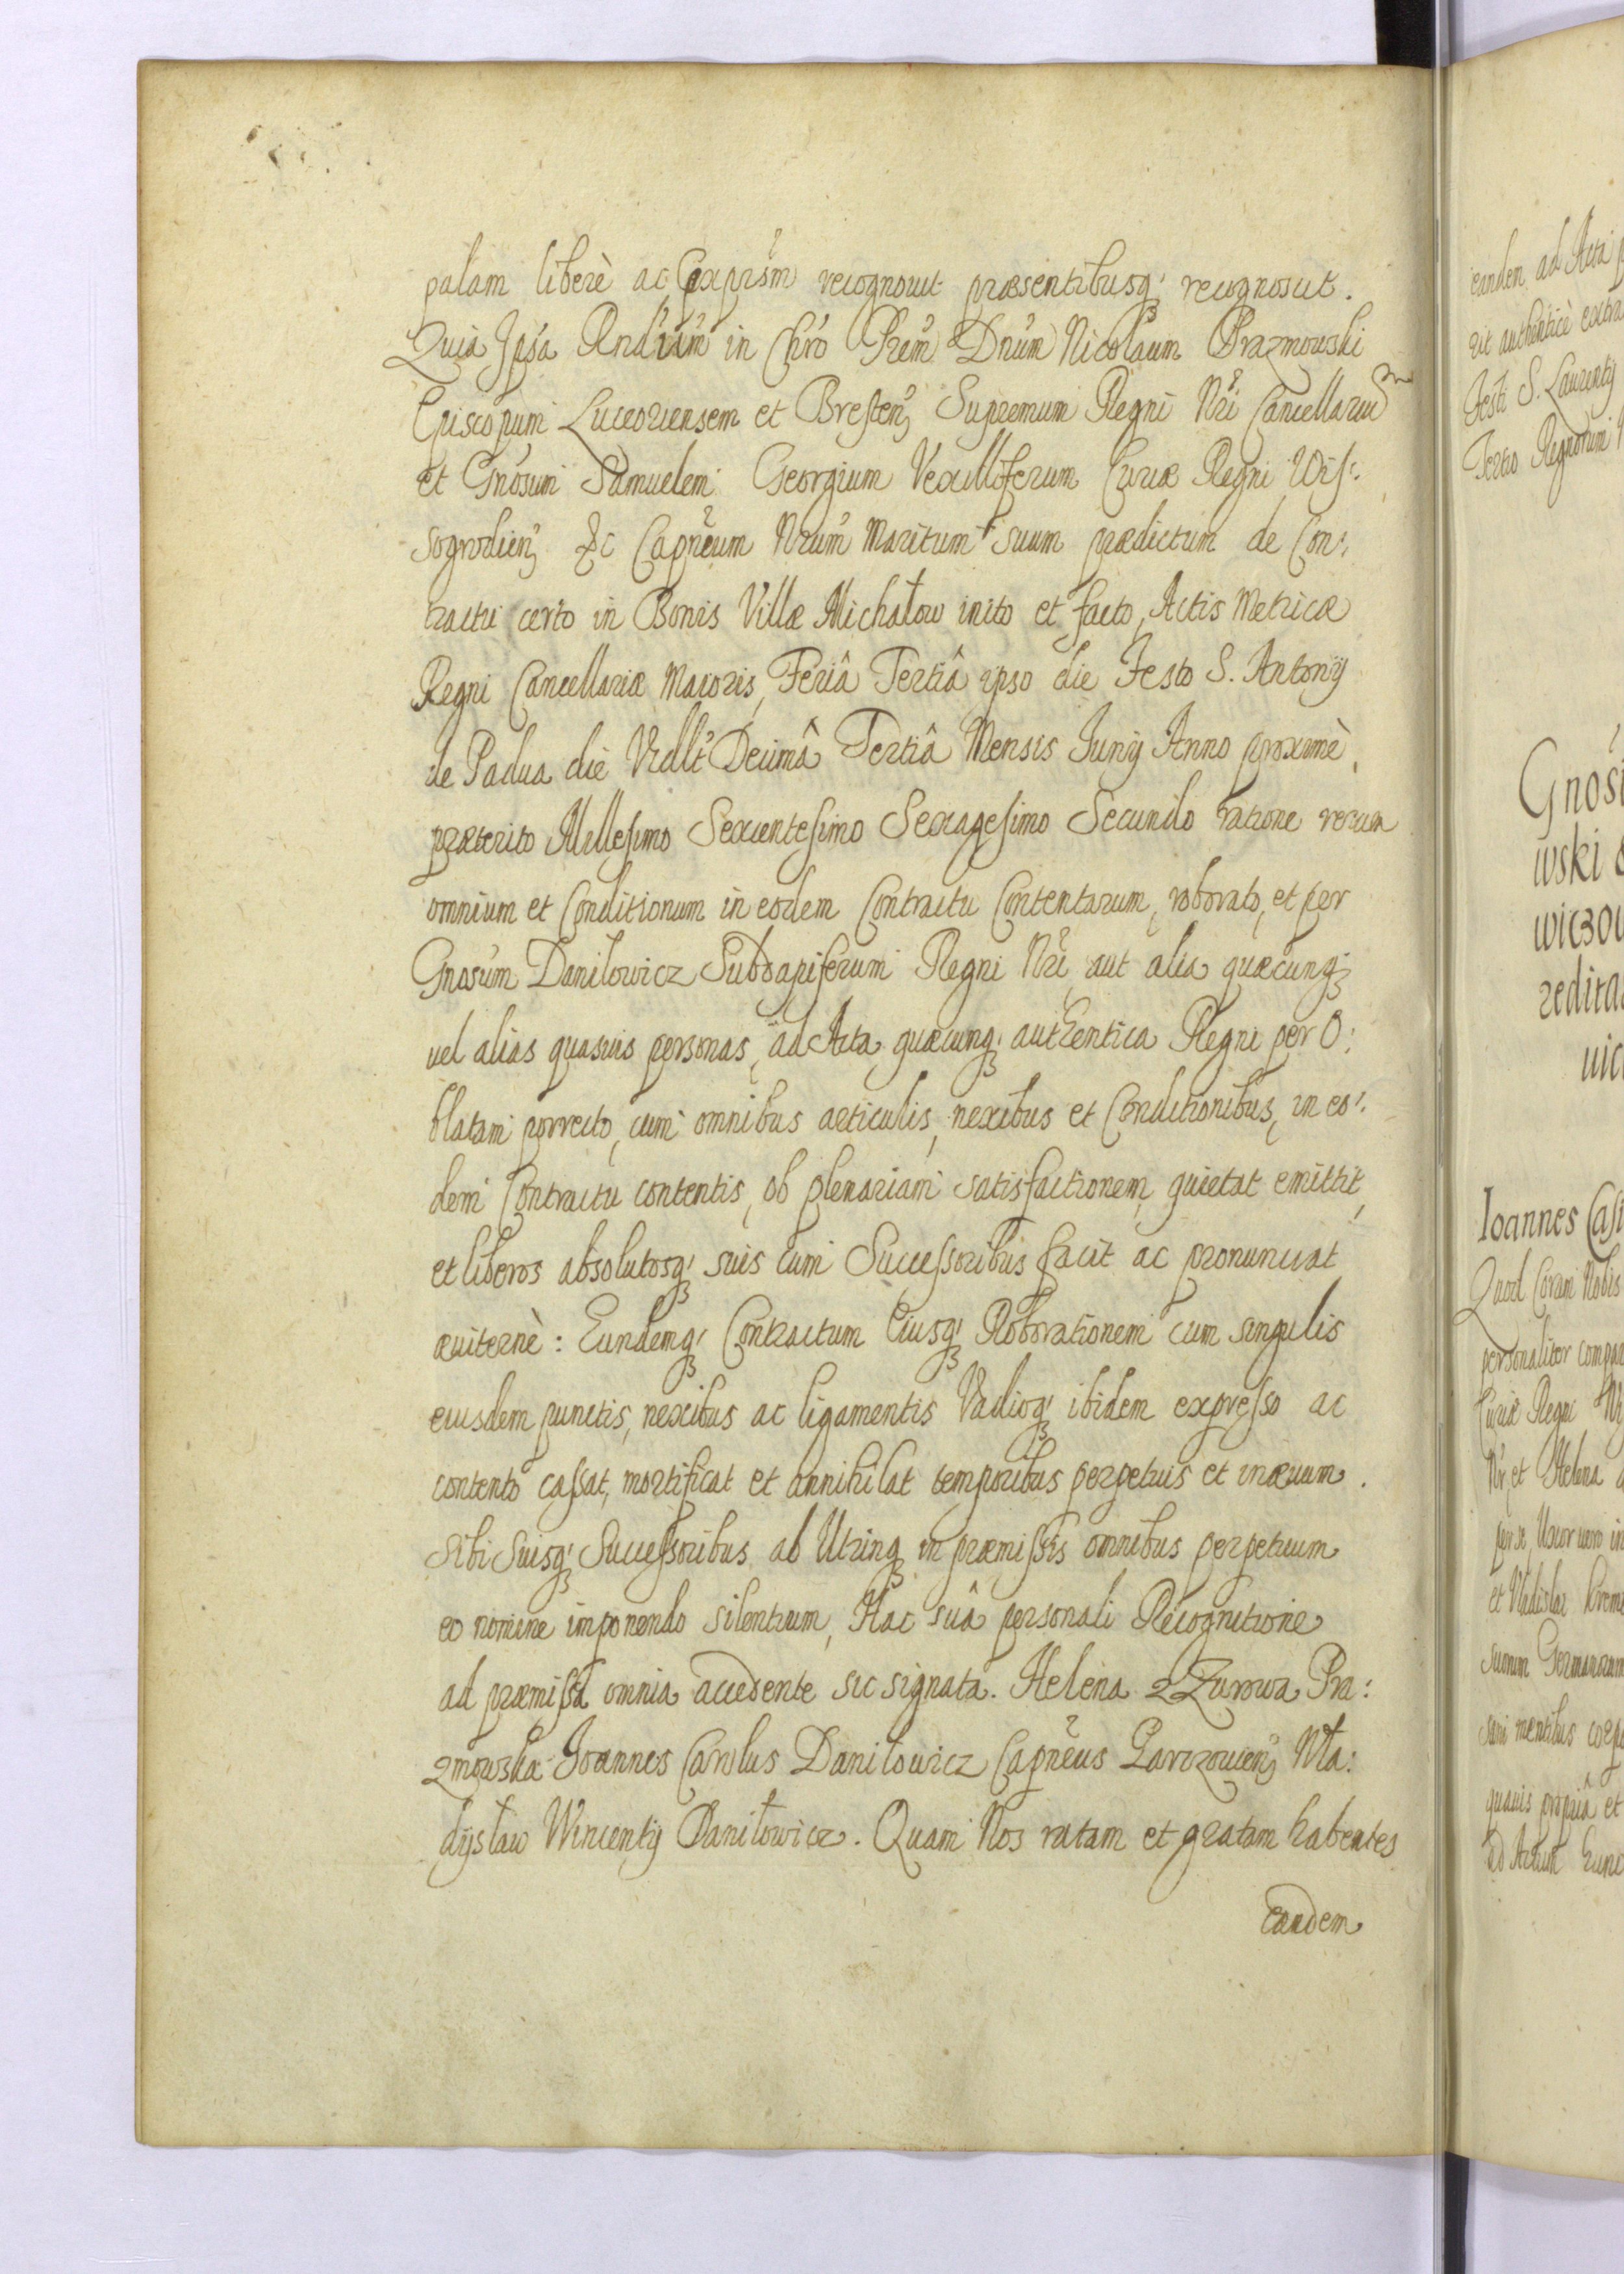 palam liberè ac expresm recognouit præsentibusq; recognoscit.
Quia Ipsa Rndium in Chro Prem Dnum Nicolaum Prazmowski
Episcopum Luceoriensem et Bresten; Supremum Regni Nri Cancellariu
et Gnosum Samuelem Georgium Vexilliferum Curiæ Regni Wis:
sogrodien; &c Capneum Nrum Maritum suum prædictum de Con:
tractu certo in Bonis Villæ Michałow inito et facto, Actis Metricæ
Regni Cancellariæ Maioris, Feriâ Tertiâ ipso die Festo S. Antonij
de Padua die Vidlt Decimâ Tertiâ Mensis Junij Anno proximè
præterito Millesimo Sexcentesimo Sexagesimo Secundo ratione rerum
omnium et Conditionum in eodem Contractu Contentarum, roborato, et per
Gnosum Danilowicz Subdapiferum Regni Nri aut alia quæcunq;
vel alias quasuis personas, ad Acta quæcunq; authentica Regni per O:
blatam porrecto, cum omnibus articulis, nexibus et Conditionibus, in eo:
dem Contractu contentis, ob plenariam satisfactionem, quietat emittit,
et liberos absolutosq; suis cum Successoribus facit ac pronunciat
æuiternè: Eundemq; Contractum Eiusq; Roborationem cum singulis
eiusdem punctis, nexibus ac ligamentis Vadioq; ibidem expresso ac
contento cassat, mortificat et annihilat temporibus perpetuis et inæuum.
Sibi Suisq; Successoribus ab Utrinq; in præmissis omnibus perpetuum
eo nomine imponendo silentium, Hac suâ personali Recognitione
ad præmissa omnia accedente sic signata. Helena z Zurowa Pra:
zmowska Joannes Carolus Danilowicz Capneus Parczouien; Wła:
dysław Wincenty Daniłowicz. Quam Nos ratam et gratam habentes
Eandem
eandem ad Acta
rit authenticè
Festi S. Laurentij
Tertio Regnorum
Gnosi
wski
wiczow
redita
uic
Ioannes Casi
Quod Coram Nobis
personaliter compar
Curiæ Regni
Nr, et Helena
per se, Uxor uero in
et Vladislai
suorum Germanorum
sani mentibus corpo
quauis propriâ et
ad Actum hunc